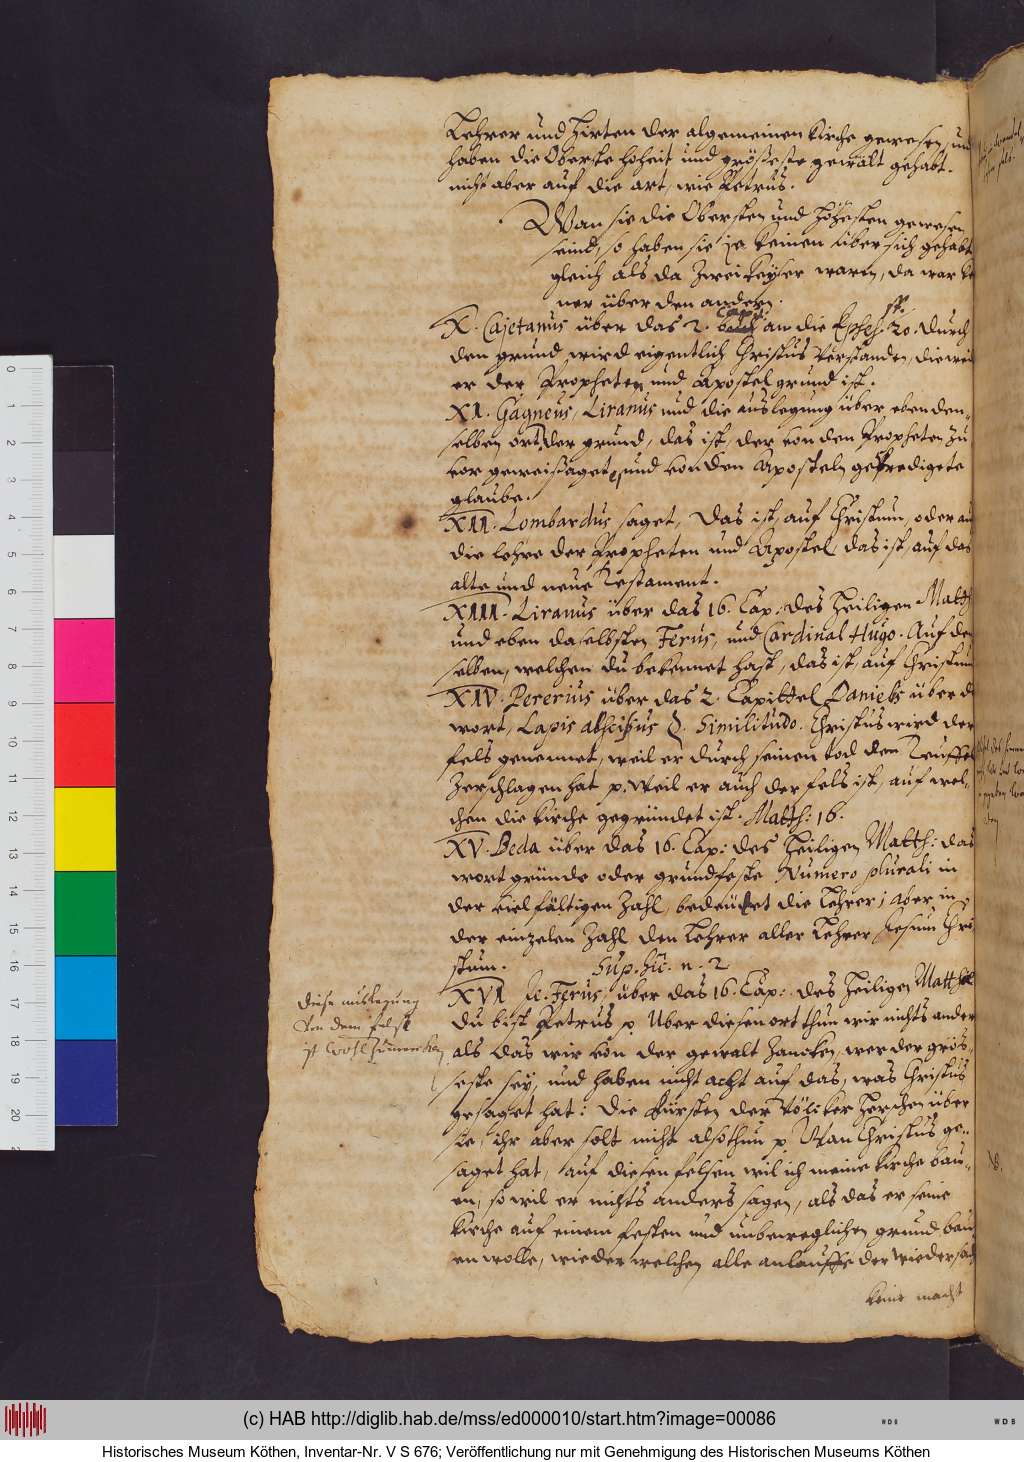 Lehrer und Hirten der algemeinen kirche gewesen, und
haben die Oberste hoheit und grösseste gewalt gehabt.
nicht aber auf die art, wie Petrus.
Wan sie die Obersten und Höhesten gewesen
seind, so haben sie ja keinen über sich gehabt
gleich als da zwei keyser waren, da war kei
ner über den andern.
X. Cajetanus über das 2. Cap: an die Ephes. 20. durch
den grund wird eigentlich Christus verstanden, dieweil
er der Propheten und Apostel grund ist.
XI. Gagneus, Liranus und die auslegung über eben den-
selben ort, der grund, das ist, der von den Propheten zu
vor geweissagete, und von den Aposteln gepredigete
glaube.
XII. Lombardus saget, das ist, auf Christum, oder auf
die lehre der Propheten und Apostel, das ist, auf das
alte und neue Testament.
XIII. Liranus über das 16. Cap: des Heiligen Matth
und eben daselbsten Ferus, und Cardinal Hugo. Auf den
selben, welchen du bekennet hast, das ist, auf Christum
XIV. Pererius über das 2. Capittel Daniels über d
wort, Lapis abscissus &. Similitudo. Christus wird der
fels genennet, weil er durch seinen tod den Teuffel
zerschlagen hat p. weil er auch der fels ist, auf wel-
chen die kirche gegründet ist. Matth: 16.
XV. Beda über das 16. Cap: des Heiligen Matth: das
wort gründe oder grundfeste Numero plurali in
der vielfältigen zahl, bedeutet die Lehrer; aber in
der einzelen zahl den Lehrer aller Lehrer Jesum Chri
stum. Sup. hîc. n. 2
XVI Je. Ferus, über das 16. Cap: des Heiligen Matthäi
du bist Petrus p. Uber diesen ort thun wir nichts anders
als das wir von der gewalt zancken, wer der grös-
seste sey, und haben nicht acht auf das, was Christus
gesaget hat: die fürsten der Völcker herschen über
sie, ihr aber solt nicht also thun p. Wan Christus ge-
saget hat, auf diesen felsen wil ich meine kirche bau-
en, so wil er nichts anders sagen, als das er seine
kirche auf einem festen und unbeweglichen grund bau
en wolle, wieder welchen alle anlauffe der wiedersach
keine macht
Diese auslegung
von dem fels
ist wohl zumercken
0
1
2
3
4
5
6
7
8
9
10
11
12
13
14
15
16
17
18
19
20
(c) HAB http://diglib.hab.de/mss/ed000010/start.htm?image=00086
WDB
WDB
Historisches Museum Köthen, Inventar-Nr. V S 676; Veröffentlichung nur mit Genehmigung des Historischen Museums Köthen